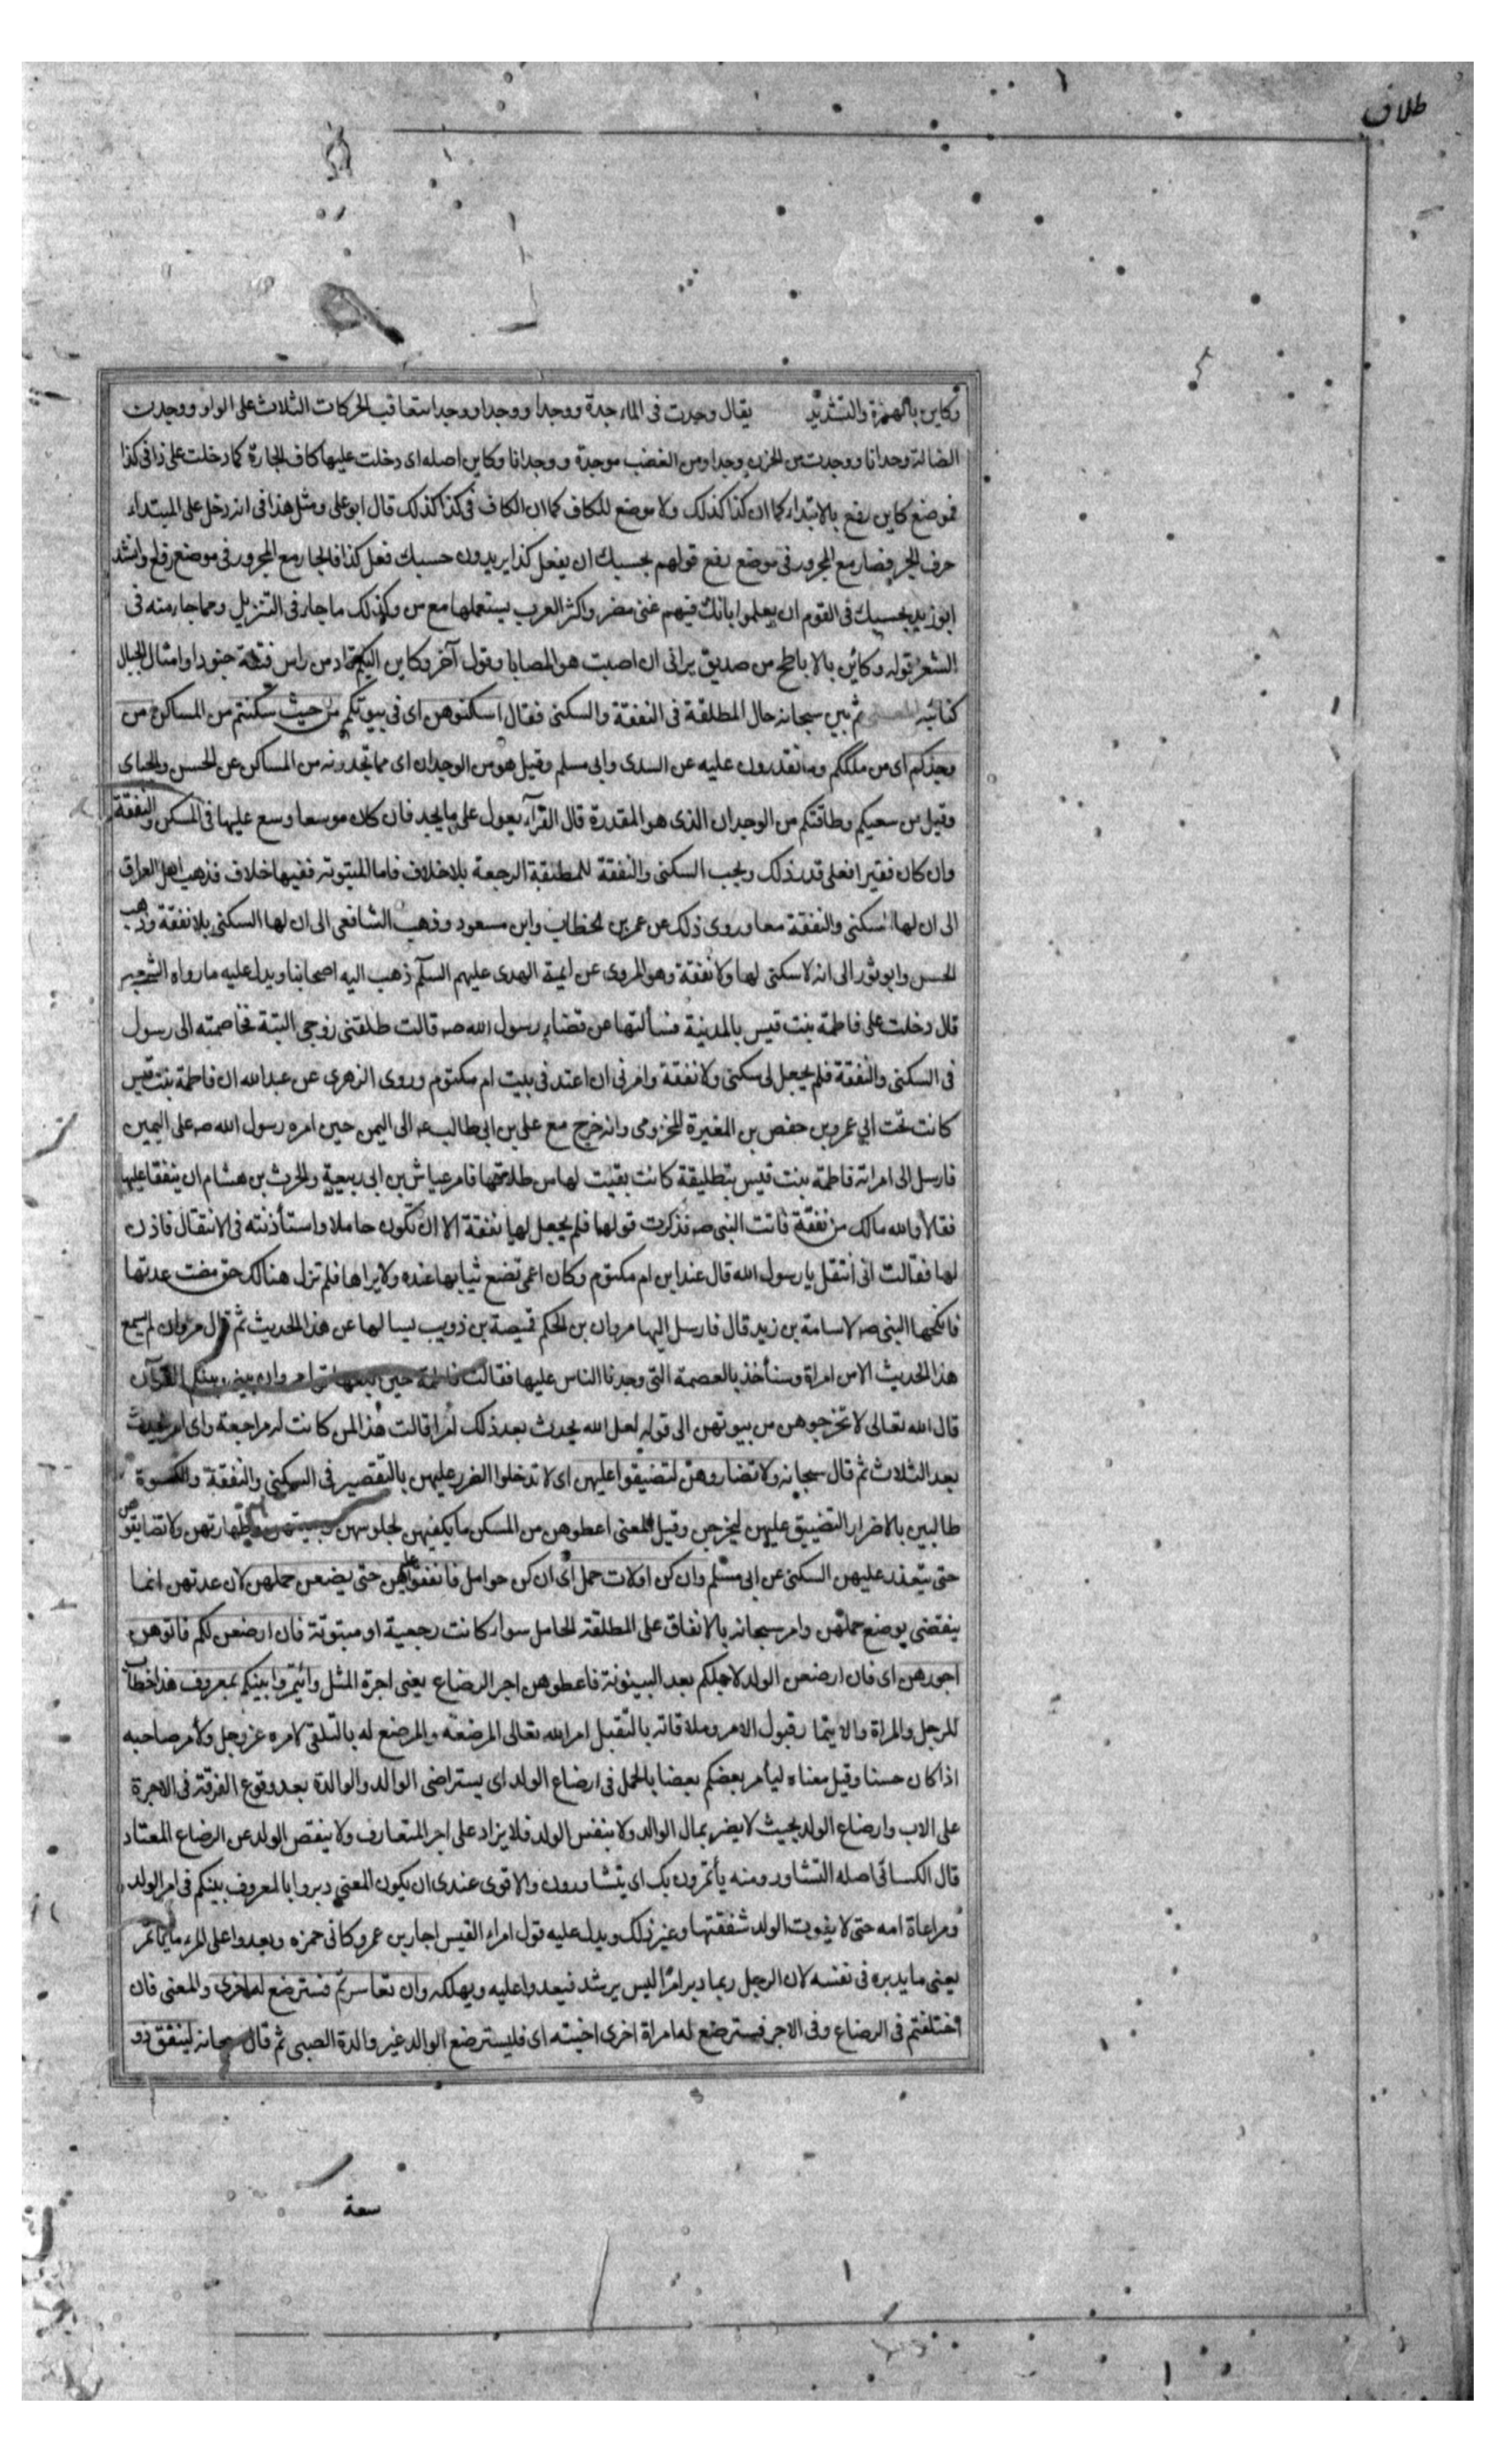 طلاق
وكاين بالهمزة والتشديد يقال وجدت فى المال جدة ووجدا ووجدا ووجدا ستعاقب الحركات الثلاث على الواو ووجدت
الضالة وجدانا ووجدت من الحزن وجدا ومن الغضب موجدة ووجدانا وكاين اصله اى دخلت عليها كاف الجارة كما دخلت على ذا فى كذا
فموضع كاين رفع بالابتداء كما ان كذا كذلك ولا موضع للكاف كما ان الكاف فى كذا كذلك قال ابو على ومثل هذا فى انه دخل على المبتداء
حرف الجر فصار مع المجرور فى موضع رفع قولهم بحسبك ان يفعل كذا يريدون حسبك فعل كذا فالجار مع المجرور فى موضع رفع وانشد
ابو زيد بحسبك فى القوم ان يعلموا بانك فيهم غنى مضر واكثر العرب يستعملها مع من وكذلك ما جاء فى التنزيل ومما جاء منه فى
الشعر قوله وكائن بالاباطح من صديق يرانى ان اصبت هو المصابا وقول آخر وكاين اليكم قاد من راس فتنة جنودا وامثال الجبال
كتائبه ثم بين سبحانه حال المطلقة فى النفقة والسكنى فقال اسكنوهن اى فى بيوتكم من حيث سكنتم من المساكن من
وجدكم اى من ملككم وما تقدرون عليه عن السدى وابى مسلم وقيل هو من الوجدان اى مما تجدونه من المساكن عن الحسن والجبائى
وقيل من سعيكم وطاقتكم من الوجدان الذى هو المقدرة قال الفراء يعول على ما يجد فان كان موسعا وسع عليها فى المسكن والنفقة
وان كان فقيرا فعلى قدر ذلك ويجب السكنى والنفقة للمطلقة الرجعة بلا خلاف فاما المبتوتة ففيها خلاف فذهب اهل العراق
الى ان لها السكنى والنفقة معا وروى ذلك عن عمر بن الخطاب وابن مسعود وذهب الشافعى الى ان لها السكنى بلا نفقة وذهب
الحسن وابو ثور الى انه لا سكنى لها ولا نفقة وهو المروى عن ايمة الهدى عليهم السلم ذهب اليه اصحابنا ويدل عليه ما رواه الشعبى
قال دخلت على فاطمة بنت قيس بالمدينة فسألتها عن قضاء رسول الله صه قالت طلقنى زوجى البتة فخاصمته الى رسول
فى السكنى والنفقة فلم يجعل لى سكنى ولا نفقة وامرنى ان اعتد فى بيت ام مكتوم وروى الزهرى عن عبد الله ان فاطمة بنت قيس
كانت تحت ابي عمرو بن حفص بن المغيرة المخزومى وانه خرج مع على بن ابى طالب عه الى اليمن حين امره رسول الله صه على اليمين
فارسل الى امراته فاطمة بنت قيس بتطليقة كانت بقيت لها من طلاقها فامر عياش بن ابى ربيعة والحرث بن هشام ان ينفقا عليها
فقالا والله مالك من نفقة فاتت النبى صه فذكرت قولها فلم يجعل لها نفقة الا ان تكون حاملا واستأذنته فى الانتقال فاذن
لها فقالت انى انتقل يا رسول الله قال عند ابن ام مكتوم وكان اعمى تضع ثيابها عنده ولا يراها فلم تزل هنالك حتى مضت عدتها
فانكحها النبى صه لاسامة بن زيد قال فارسل اليها مروان بن الحكم قبيصة بن ذويب يسالها عن هذا الحديث ثم قال مروان لم يسمع
هذا الحديث الا من امراة وسنأخذ بالعصمة التى وجدنا الناس عليها فقالت فاطمة حين بلغها قول مروان بينى وبينكم القرآن
قال الله تعالى لا تخرجوهن من بيوتهن الى قوله لعل الله يحدث بعد ذلك امرا قالت هذا لمن كانت له مراجعة واى امر يحدث
بعد الثلاث ثم قال سبحانه ولا تضاروهن لتضيقوا عليهن اى لا تدخلوا الضرر عليهن بالتقصير فى السكنى والنفقة والكسوة
طالبين بالاضرار التضييق عليهن ليخرجن وقيل المعنى اعطوهن من المسكن ما يكفيهن لجلوسهن وطهارتهن ولا تضايقوهن
حتى يتعذر عليهن السكنى عن ابى مسلم وان كن اولات حمل اى ان كن حوامل فانفقوا عليهن حتى يضعن حملهن لان عدتهن انما
ينقضى بوضع حملهن وامر سبحانه بالانفاق على المطلقة الحامل سواء كانت رجعية او مبتوتة فان ارضعن لكم فاتوهن
اجورهن اى فان ارضعن الولد لاجلكم بعد البينونة فاعطوهن اجر الرضاع يعنى اجرة المثل وائتمروا بينكم بمعروف هذا خطاب
للرجل والمراة والايتما رقبول الامر وملاقاته بالتقبل امر الله تعالى المرضعة والمرضع له بالتلقى لامره عز وجل ولأمر صاحبه
اذا كان حسنا وقيل معناه ليأمر بعضكم بعضا بالجمل فى ارضاع الولد اى يستراضى الوالد والوالدة بعد وقوع الفرقة فى الاجرة
على الاب وارضاع الولد بحيث لا يضر بمال الوالد ولا بنفس الولد فلا يزاد على اجر المتعارف ولا ينقص الولد عن الرضاع المعتاد
قال الكسائى اصله التشاور ومنه يأتمرون بك اى يتشاورون والاقوى عندى ان يكون المعنى دبروا بالمعروف بينكم فى امر الولد
ومراعاة امه حتى لا يفوت الولد شفقتها وغير ذلك ويدل عليه قول امراء القيس اجار بن عمرو كانى خمره ويعدوا على المرء ما يأتمر
يعنى ما يدبره فى نفسه لان الرجل ربما دبر امرا ليس برشد فيعدوا عليه ويهلكه وان تعاسرتم فسترضع له اخرى والمعنى فان
اختلفتم فى الرضاع وفى الاجر فسترضع له امراة اخرى اجنبية اى فليسترضع الوالد غير والدة الصبى ثم قال سبحانه لينفق ذو
سعة